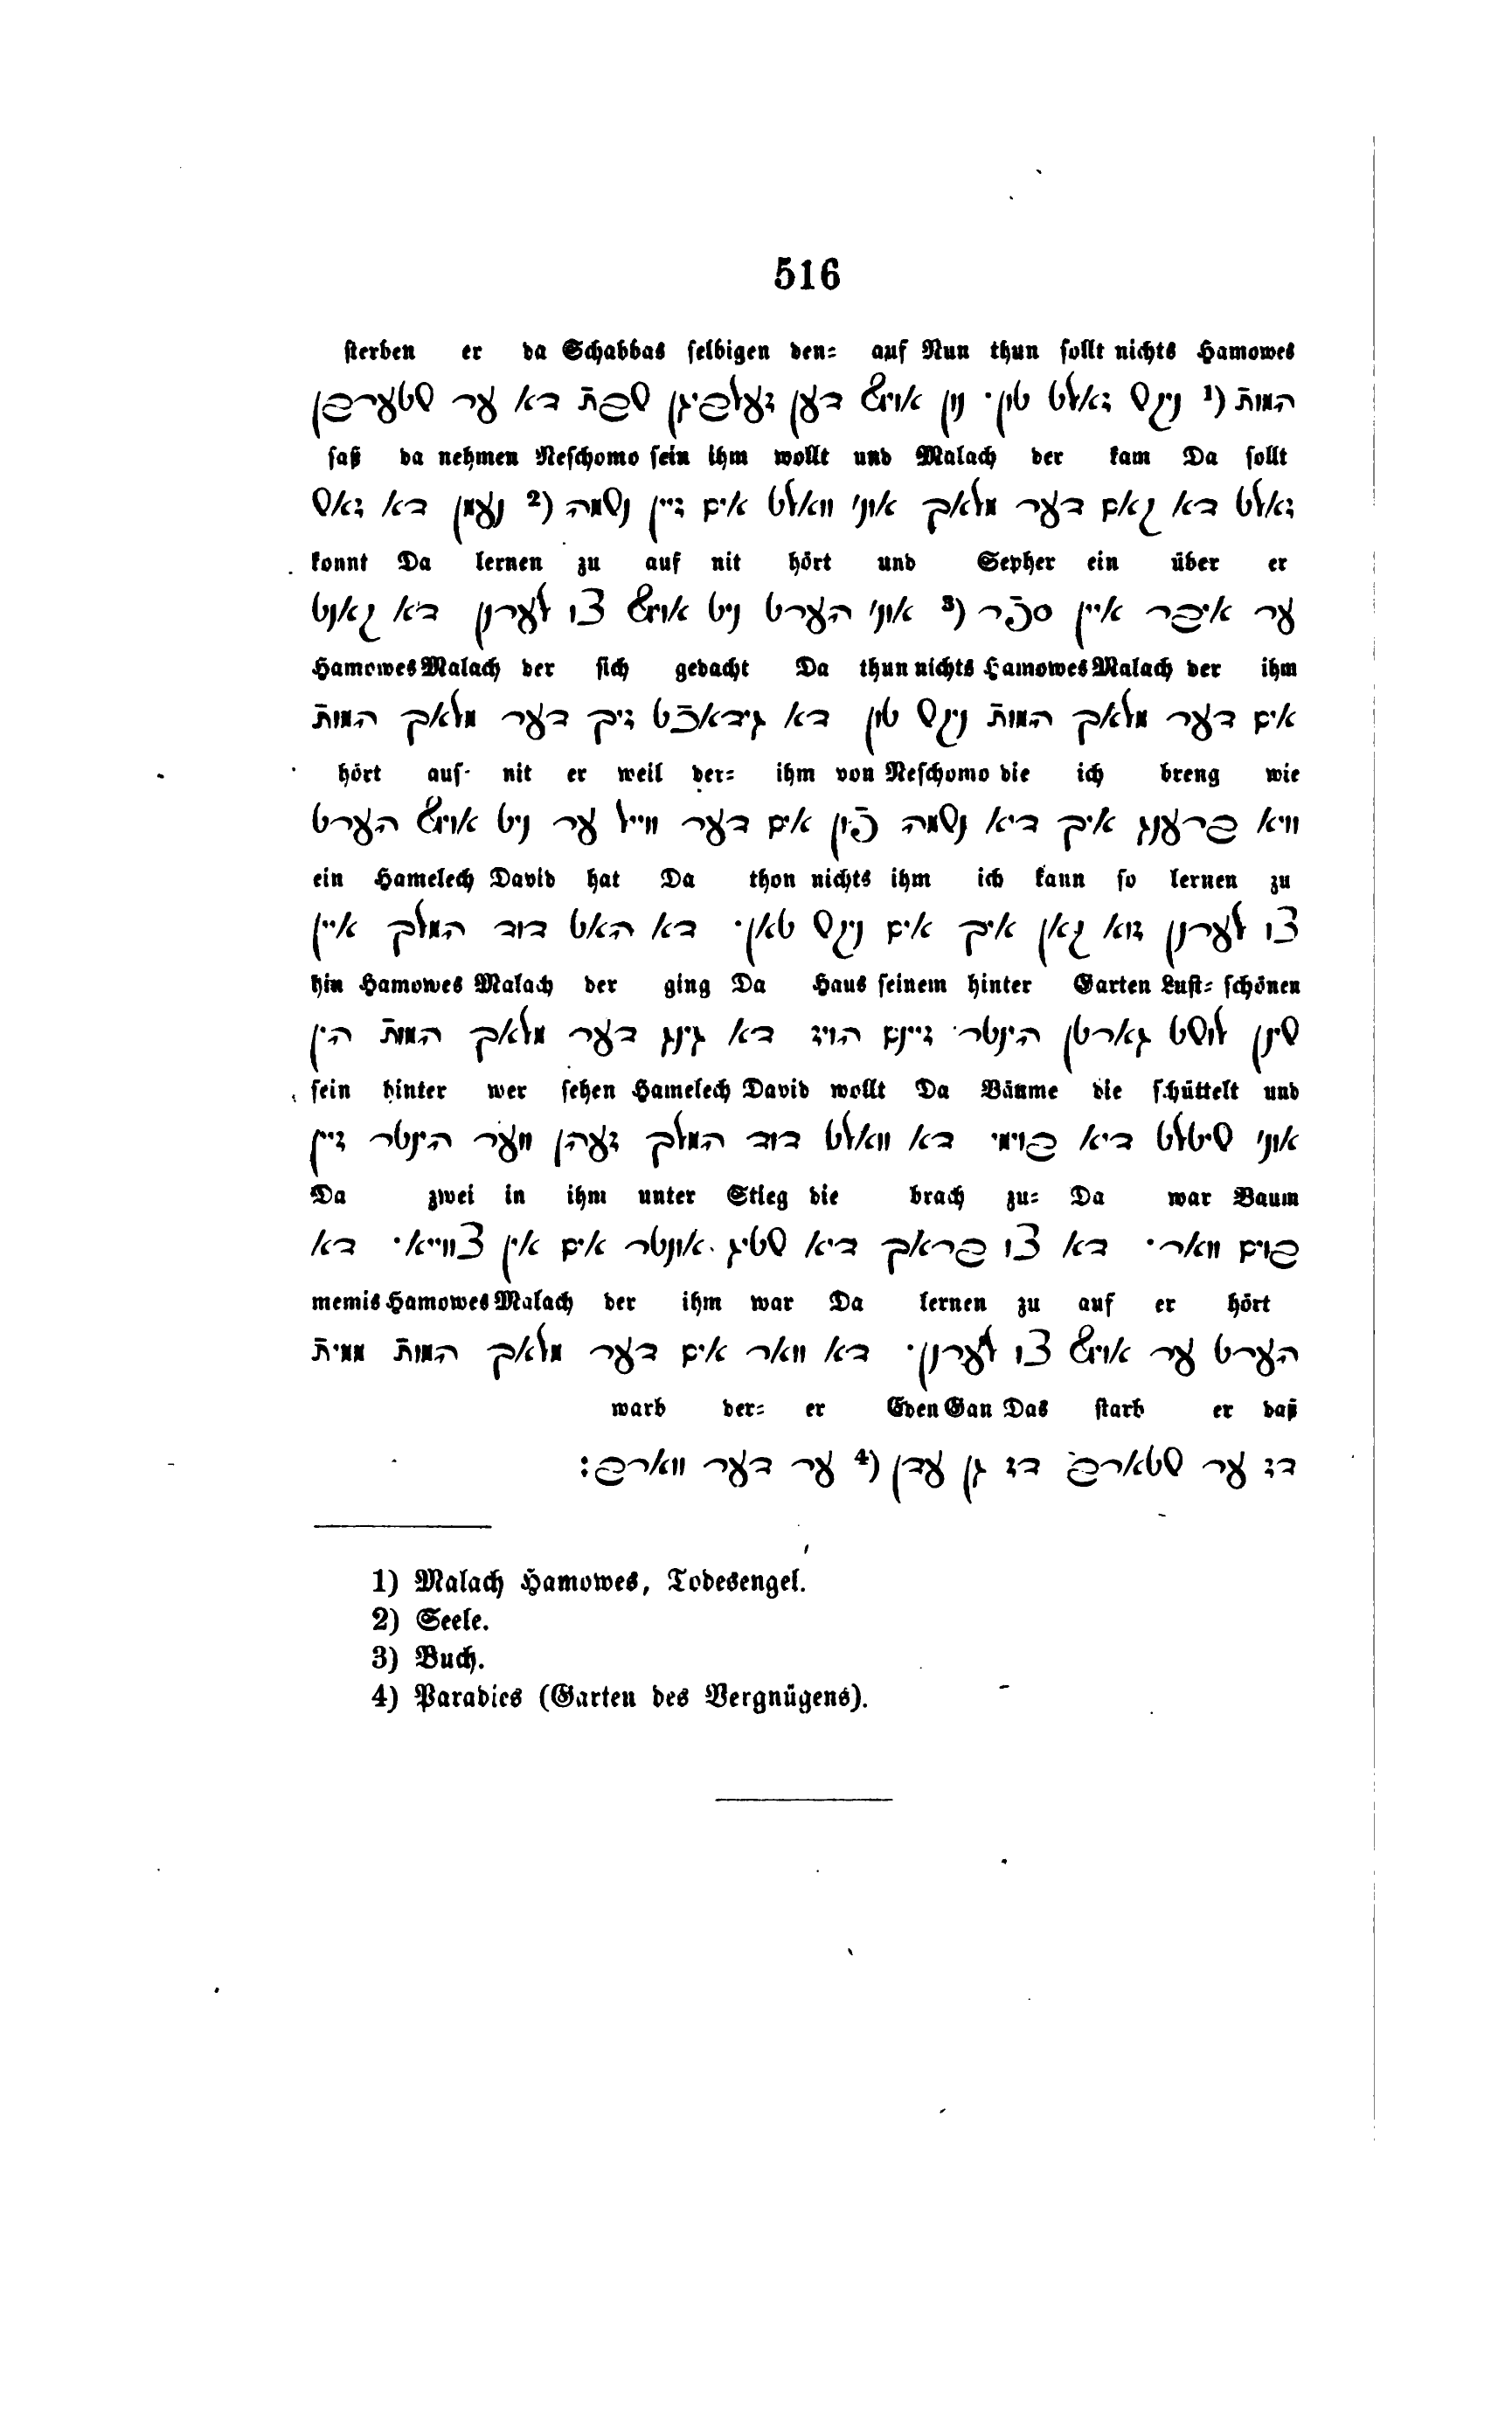 516
sterben er da Schabbas selbigen den= auf Nun thun sollt nichts Hamowes
המותֿ (1 ניקש זאלט טון· נון אויף דען זעלביגן שבתֿ דא ער שטערבן
saß da nehmen Neschomo sein ihm wollt und Malach der kam Da sollt
זאלט דא קאם דער מלאך אונ' וואלט אים זיין נשמה (2 נעמן דא זאש
konnt Da lernen zu auf nit hört und Sepher ein über er
ער איבר איין ספֿר (3 אונ' הערט ניט אויף צו לערנן דא קאנט
Hamowes Malach der sich gedacht Da thun nichts Hamowes Malach der ihm
אים דער מלאך המותֿ ניקש טון דא גידאכֿט זיך דער מלאך המותֿ
hört auf nit er weil der= ihm von Neschomo die ich breng wie
וויא ברענג איך דיא נשמה פֿון אים דער ווייל ער ניט אויף הערט
ein Hamelech David hat Da thon nichts ihm ich kann so lernen zu
צו לערנן זוא קאן איך אים ניקש טאן· דא האט דוד המלך איין
hin Hamowes Malach der ging Da Haus seinem hinter Garten Lust= schönen
שינן לושט גארטן הינטר זיינם הויז דא גינג דער מלאך המותֿ הין
sein hinter wer sehen Hamelech David wollt Da Bäume die schüttelt und
אונ' שיטלט דיא בוימי דא וואלט דוד המלך זעהן ווער הינטר זיין
Da zwei in ihm unter Stieg die brach zu= Da war Baum
בוים וואר· דא צו בראך דיא שטיג אונטר אים אין צווייא· דא
memis Hamowes Malach der ihm war Da lernen zu auf er hört
הערט ער אויף צו לערנן· דא וואר אים דער מלאך המותֿ ממיתֿ
warb der= er Eden Gan Das starb er daß
דז ער שטארב דז גן עדן (4 ער דער ווארב:
1) Malach Hamowes, Todesengel.
2) Seele.
3) Buch.
4) Paradies (Garten des Vergnügens).